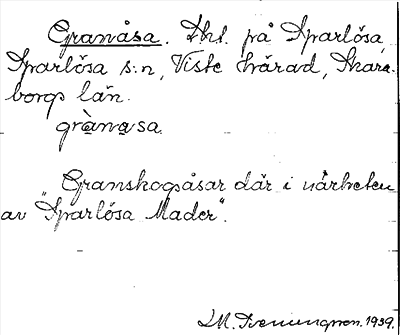 Granåsa. Ths. på Sparlösa,
Sparlösa s:n, Viste härad, Skara-
borgs län.
grànasa
Granskogsåsar där i närheten
av "Sparlösa Mader".
1939.